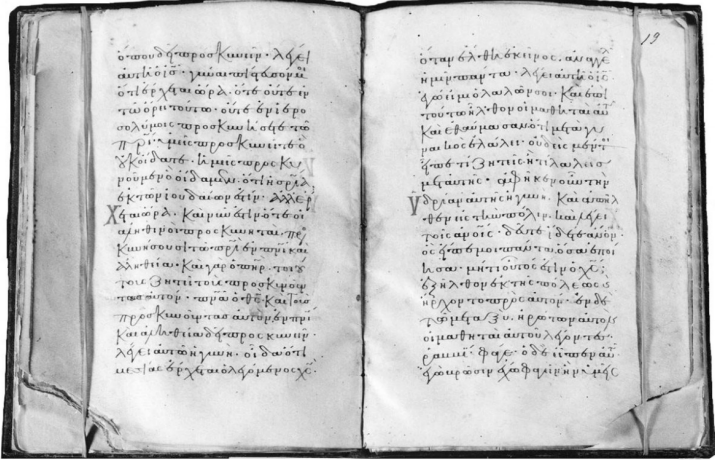 ὅπου δεῖ προσκυνεῖν· λέγει
αὐτῆ ὁ ις· γύναι πίστευσόν μοι
ὅτι ἔρχεται ὥρα· ὅτε οὔτε ἐν
τῶ ὄρει τούτω· οὔτε ἐν ἱερο
σολύμοις προσκυνήσετε τῶ
πρι· ὑμεῖς προσκυνεῖτε ὃ
οὐκ οἴδατε· ἡμεῖς προσκυ
νοῦμεν ὃ οἴδαμεν· ὅτι ἡ σρια
ἐκ τῶν ἰουδαίων ἐστίν· ἀλλ' ἔρ
χεται ὥρα· καὶ νῦν ἐστιν ὅτε οἱ
ἀληθινοὶ προσκυνηταὶ· προσ
κυνήσουσι τῶ πρι ἐν πνι καὶ
ἀληθεία· καὶ γὰρ ὁ πηρ τοιού
τους ζητεῖ τοὺς προσκυνοῦν
τας αὐτόν· πνα ὁ θς· καὶ τοὺς
προσκυνοῦντας αὐτὸν ἐν πνι
καὶ ἀληθεία δεῖ προσκυνεῖν·
λέγει αὐτῶ ἡ γυνή· οἶδα ὅτι
μεσίας ἔρχεται ὁ λεγόμενος χς·
19
ὅταν ἔλθη ἐκεῖνος. ἀναγγελεῖ
ἡμῖν πάντα· λέγει αὐτῆ ὁ ις
ἐγώ εἰμι ὁ λαλῶν σοι· καὶ ἐπὶ
τούτω ἦλθον οἱ μαθηταὶ αὐτοῦ
καὶ ἐθαύμασαν ὅτι μετὰ γυ
ναικὸς ἐλάλει· οὐδεὶς μέντοι
εἶπε τί ζητεῖς ἢ τί λαλεῖς
μετ' αὐτῆς· ἀφῆκεν οὖν τὴν
ὑδρίαν αὐτῆς ἡ γυνή· καὶ ἀπῆλ
θεν εἰς τὴν πόλιν· καὶ λέγει
τοῖς ανοις· δεῦτε ἴδετε ανον
ὃς εἶπέ μοι πάντα ὅσα ἐποί
ησα· μήτι οὗτός ἐστιν ὁ χς;
ἐξῆλθον ἐκ τῆς πόλεως
ἤρχοντο πρὸς αὐτόν· ἐν δὲ
τῶ μεταξὺ· ἠρώτων αὐτὸν
οἱ μαθηταὶ αὐτοῦ λέγοντες·
ῥαββί· φάγε· ὁ δὲ εἶπεν αὐτοῖς
ἐγὼ βρῶσιν ἔχω φαγεῖν ἣν ὑμεῖς